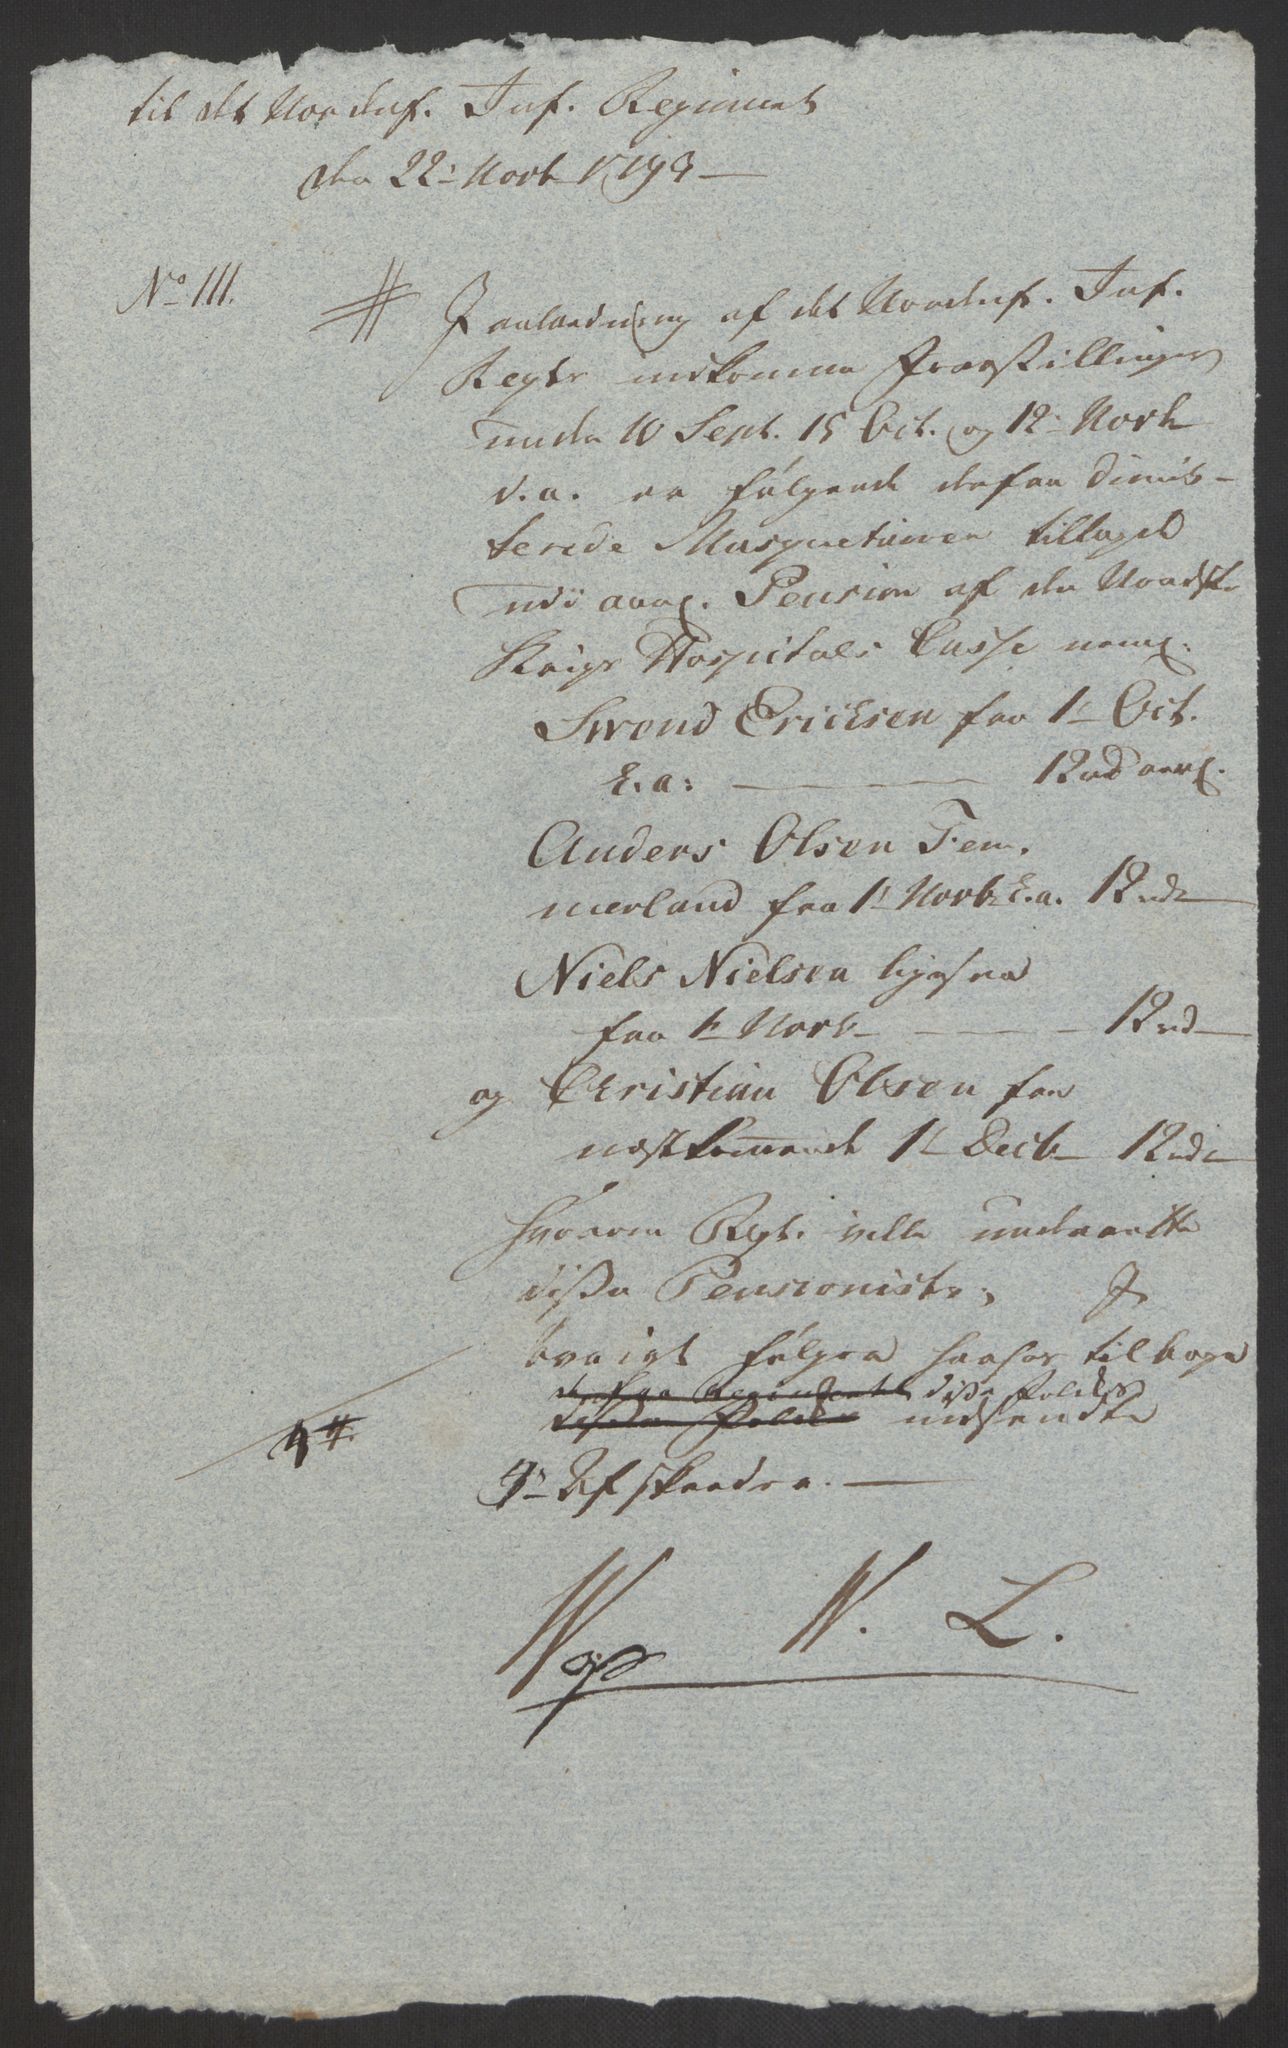 til det Nordenf. Inf. Regiment
den 22de Novb 1793 —
No 111. # J anledning af det Nordenf. Inf.
Regts indkomne Forestillinger
under 10 Sept. 15 Oct. og 12te Novb
d. a. ere følgende derfra dimit-
terede Musqueterer tillagt
udi aarl. Pension af den Nordsk
Krigs Hospitals Casse neml.
Svend Ericksen fra 1te Oct.
d. a: — 12 rd aarl.
Anders Olsen Tem-
merland fra 1te Novb d. a. 12 rd
Niels Nielsen
fra 1te Novb — 12 rd
og Christian Olsen fra
nestkommende 1te Decb 12 rd
hvorom Regt. ville underrette
disse Pensionister, J
øvrigt følger herhos tilbage
derfra Regimentet disse Folkes
disse Folkes indsendte
4re Afskeeder. —
4 #.
W. L.